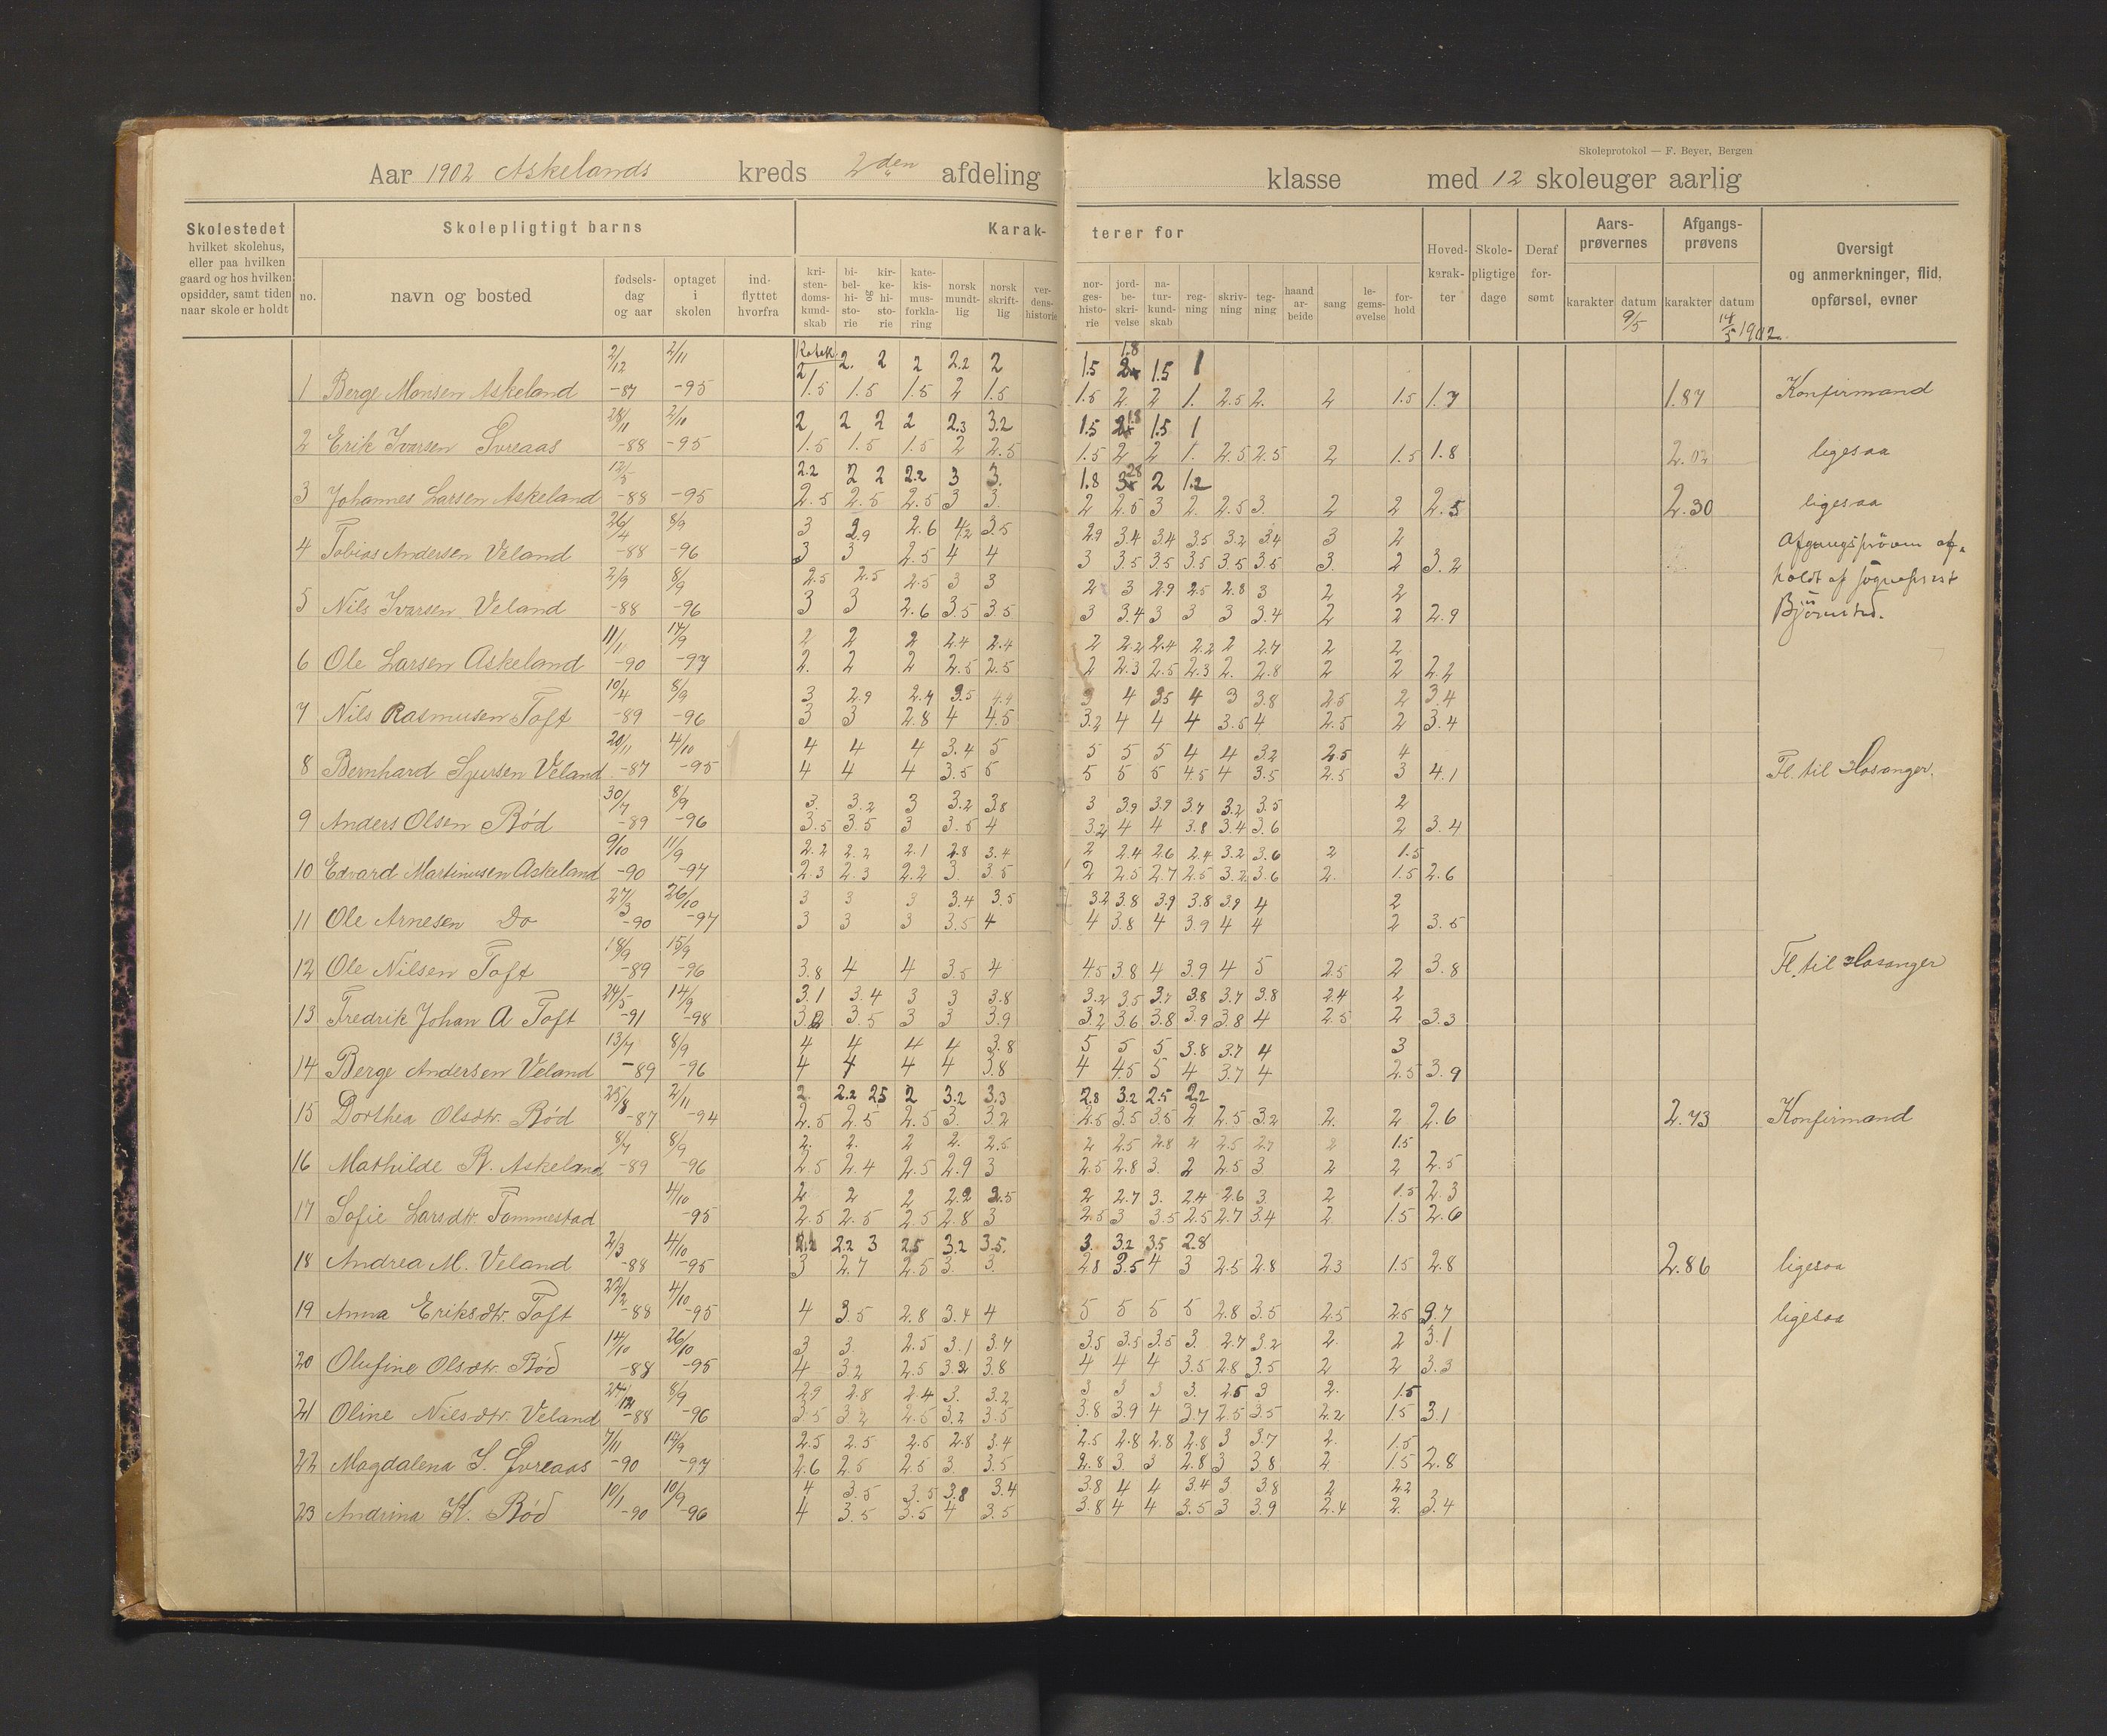 Skoleprotokol — F. Beyer, Bergen
Aar 1902 Askelands kreds 2den afdeling klasse med 12 skoleuger aarlig
Skolestedet hvilket skolehus, eller paa hvilken gaard og hos hvilken opsidder, samt tiden naar skole er holdt
Skolepligtigt barns
no.
navn og bosted
fødsels-dag og aar
optaget i skolen
ind-flyttet hvorfra
Karak-terer for
kri-sten-doms-kund-skab
bi-bel-hi-sto-rie og kir-ke-hi-sto-rie
kate-kis-mus-forkla-ring
norsk mundt-lig
norsk skrift-lig
ver-dens-historie
nor-ges-histo-rie
jord-be-skri-velse
na-tur-kund-skab
reg-ning
skriv-ning
teg-ning
haand ar-beide
sang
le-gems-øvelse
for-hold
Hoved-karak-ter
Skole-pligtige dage
Deraf for-sømt
Aars-prøvernes
karakter datum 9/5
Afgangs-prøvens
karakter datum 14/5 1902
Oversigt og anmerkninger, flid, opførsel, evner
2/12 2/11 2 2. 2 2 2.2 2 1.5 1.8 1.5 1
1 Berge Monsen Askeland -87 -95 1.5 1.5 1.5 2 1.5 1.5 2. 2 1. 2.5 2. 2 1.5 1.7 1.87 Konfirmand
28/11 2/11 2 2 2 2 2.3 3.2 1.5 1.8 1.5 1
2 Erik Ivarsen -88 -95 1.5 1.5 1.5 2 2.5 1.5 2 2 1. 2.5 2.5 2 1.5 1.8 2.02 ligesaa
12/3 2.2 2 2 2.2 3 3. 1.8 2.8 2 1.2
3 Johannes Larsen Askeland -88 -95 2.5 2.5 2.5 3 3. 2 2.5 3 2. 2.5 3. 2 2 2.5 2.30 ligesaa
26/4 8/9 3 2.9 2.6 4.2 3.5 2.9 3.4 3.4 3.5 3.2 3.4 3 2
4 Tobias Andersen Veland -88 -96 3 3 2.5 4 4 3 3.5 3.5 3.5 3.5 3.5 3. 2 3.2 Afgangsprøven af-
2/9 8/9 2.5 2.5 2.5 3 3 2 3 2.9 2.5 2.8 3 2 2 holdt af sogneprest
5 Nils Ivarsen Veland -88 -96 3 3 2.6 3.5 3.5 3 3.4 3 3 3 3.4 2 2 2.9
11/1 14/9 2 2 2 2.4 2.4 2 2.2 2.4 2.2 2 2.7 2 2
6 Ole Larsen Askeland -90 -97 2. 2 2 2.5 2.5 2 2.3 2.5 2.3 2. 2.8 2 2 2.2
10/4 8/9 3 2.9 2.7 3.5 4.4 3 4 3.5 4 3 3.8 2.5 2 3.4
7 Nils Rasmusen Toft -89 -96 3 3 2.8 4 4.5 3.2 4 4 4 3.5 4 2.5 2 3.4
20/11 4/10 4 4 4 3.4 5 5 5 5 4 4 3.2 2.5 4
8 Bernhard Sjursen Veland -87 -95 4 4 4 3.5 5 5 5 5 4.5 4 3.5 2.5 3 4.1 Fl. til Hosanger.
30/7 8/9 3. 3.2 3 3.2 3.8 3 3.9 3.9 3.7 3.2 3.5 2
9 Anders Olsen Rød -89 -96 3.5 3.5 3 3.5 4 3.2 4 4 3.8 3.4 3.6 2 3.4
9/10 11/9 2.2 2.2 2.1 2.8 3.4 2 2.4 2.6 2.4 3.2 3.6 2 1.5
10 Edvard Martinusen Askeland -90 -97 2.3 2.3 2.2 3. 3.5 2 2.5 2.7 2.5 3.2 3.6 2. 1.5 2.6
27/3 26/10 3 3 3 3.4 3.5 3.2 3.8 3.9 3.8 3.9 4 2
11 Ole Arnesen Do -90 -97 3 3 3 3.5 4 4 3.8 4 3.9 4 4 2 3.5
18/9 15/9
12 Ole Nilsen Toft -89 -96 3.8 4 4 3.5 4 4.5 3.8 4 3.9 4 5 2.5 2 3.8 Fl. til Hosanger
24/5 14/9 3.1 3.4 3 3 3.8 3.2 3.5 3.7 3.8 3.7 3.8 2.4 2
13 Fredrik Johan A Toft -91 -98 3.2 3.5 3 3 3.9 3.2 3.6 3.8 3.9 3.8 4 2.5 2 3.3
13/7 8/9 4 4 4 4 3.8 5 5 5 3.8 3.7 4 3
14 Berge Andersen Veland -89 -96 4 4 4 4 3.8 4 4.5 5 4 3.7 4 2.5 3.9
25/8 2/11 2. 2.2 2.5 2 3.2 3.3 2.8 3.2 2.5 2.2
15 Dorthea Olsdtr. Rød -87 -94 2.5 2.5 2.5 3. 3.2 2.5 3.5 3.5 2 2.5 3.2 2. 2 2.6 2.73 Konfirmand
8/7 8/9 2. 2. 2 2. 2.5 2 2.5 2.8 2 2.5 2.7 2 1.5
16 Mathilde R. Askeland -89 -96 2.5 2.4 2.5 2.9 3 2.5 2.8 3. 2 2.5 3 2 2 2.5
4/10 2. 2 2 2.2 2.5 2 2.7 3. 2.4 2.6 3 2 1.5 2.3
17 Sofie Larsdtr. Tommestad -95 2.5 2.5 2.5 2.8 3 2.5 3 3.5 2.5 2.7 3.4 2 1.5 2.6
2/3 4/10 2.2 2.2 3 2.5 3.2 3.5. 3. 3.2 3.5 2.8
18 Andrea M. Veland -88 -95 3 2.7 2.5 3. 3. 2.8 3.5 4 3 2.5 2.8 2.3 1.5 2.8 2.86 ligesaa
22/2 4/10
19 Anna Eriksdtr. Toft -88 -95 4 3.5 2.8 3.4 4 5 5 5 5 2.8 3.5 2.5 2.5 3.7 ligesaa
14/10 26/10 3 3. 2.5 3.1 3.7 3.5 3.5 3.5 3. 2.7 3.2 2. 2 3.1
20 Olufine Olsdtr. Rød -88 -95 4 3.2 2.5 3.2 3.8 4 4 4 3.5 2.8 3.5 2 2 3.3
24/12 8/9 2.9 2.8 2.4 3. 3.2 3 3 3 3. 2.5 3 2. 1.5
21 Oline Nilsdtr. Veland -88 -96 3.5 3.2 2.5 3.2 3.5 3.8 3.9 4 3.7 2.5 3.5 2.2 1.5 3.1
7/11 14/9 2.5 2.5 2.5 2.8 3.4 2.5 2.8 2.8 2.8 3 3.7 2. 1.5
22 Magdalena I. -90 -97 2.6 2.5 2.5 3. 3.5 2.8 3 3 2.8 3 3.8 2 1.5 2.8
10/1 10/9 4 3.5 3.5 3.8 3.4 3.8 4 4 3.4 3. 3.8 2 2.2
23 Andrina K. Rød -90 -96 4 3.5 3.5 4 3.5 3.8 4 4 3.5 3 3.9 2.4 2. 3.4